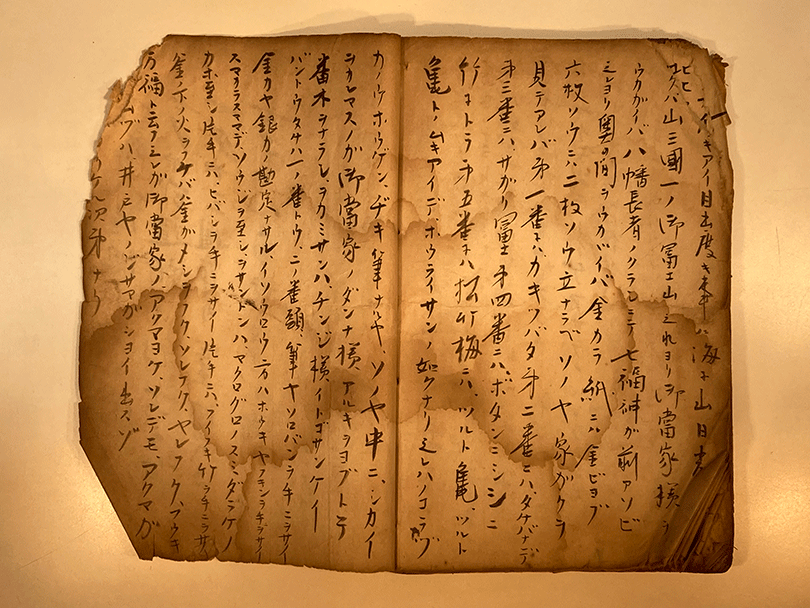 キアイ目出度キ事ハ海ニ山日
山三國一ノ御冨士山ミれヨリ御當家様ヲ
ウカガイバ八幡長者ノクラシニテ七福神が前アソビ
ミレヨリ奥の間ヲウカガイバ金カラ紙ニハ金ビヨブ
六枚ソウニ、二枚ソウ立ナラベソノヤ家ガクラ
見テアレバ第一番ニハカキツバタ第二番ニハ、タケバナデ
第三番ニハ、サガリ冨第四番ニハ、ボタンニシシニ
竹ニトラ第五番ニハ松竹梅ニハ、ツルト亀、ツルト
亀トノムキアイデ、ホウライサンノ如クナリミレハノコラヅ
カノウホウゲン、ヂキ筆ナルヤ、ソノヤ中ニ、シカイ
ヲカレマスノガ御當家ノダンナ様アルキヲヨブトテ
番木ヲナラシ、ヲカミサンハ、チンジ様イトゴサンケイ
バントウタケハ一ノ番トウ、二ノ番頭筆ヤソロバンヲチニヲサイ
金カヤ銀カノ勘定ナサル、イソウロウ一万ハホウキヤフキンヲチヲサイ
スマカラスマデ、ソウジヲ至シ、ヲサンドンハ、マクログロノスミダラケノ
カホ至シ片手ニハ、ヒバシヲチニヲサイ片手ニハ、フイフキ竹ヲチニヲサイ
釜ノホノ火ヲフケバ釜ガメシヲフク、ソレフク、ヤレフク、フウキ
万福ト云フミレガ御當家ノアクマヨケ、ソレデモ、アクマガ
ムヅハ井戸ヤノジサマガショイ出スゾ
次第ナリ